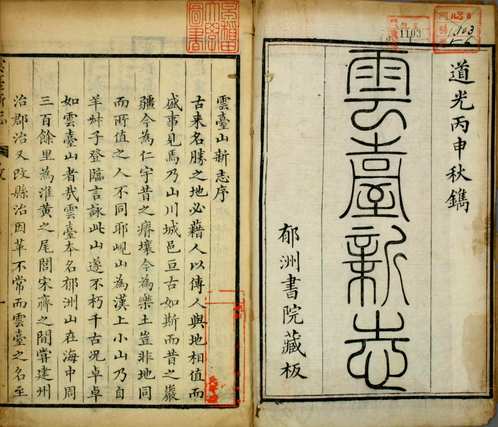 道光丙申秋鐫
雲臺新志
郁洲書院藏板
1103
雲臺山新志序
古来名勝之地必藉人以傳人與地相值而
盛事見焉乃山川城邑亘古如斯而昔之巖
疆今為仁宇昔之瘠壤今為樂土豈非地同
而所值之人不同耶峴山為漢上小山乃自
羊叔子登臨言詠此山遂不朽千古況卓卓
如雲臺山者哉雲臺本名郁洲山在海中周
三百餘里為淮黄之尾閭宋齊之間嘗建州
治郡治又改縣治因革不常而雲臺之名至